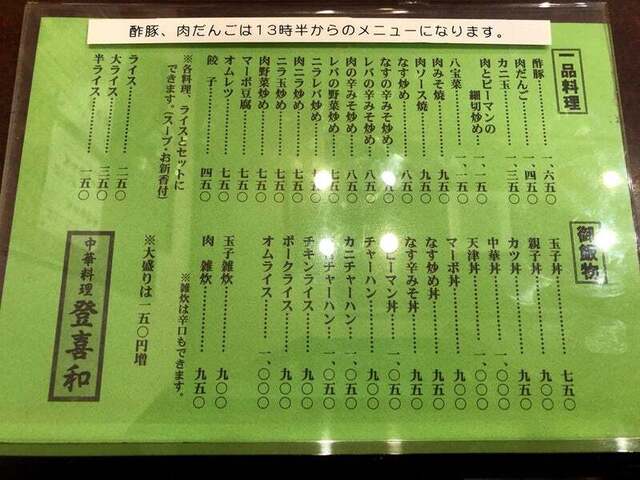 酢豚、肉だんごは13時半からのメニューになります。
一品料理
酢豚………一、六五〇
肉だんご………一、四五〇
カニ玉………一、三五〇
肉とピーマンの
細切炒め…一、一五〇
八宝菜………一、一五〇
肉みそ焼………九五〇
肉ソース焼………九五〇
なす炒め………八五〇
なすの辛みそ炒め…八五〇
レバの辛みそ炒め…八五〇
肉の辛みそ炒め…八五〇
レバの野菜炒め…七五〇
ニラレバ炒め………七五〇
肉ニラ炒め………七五〇
ニラ玉炒め………七五〇
肉野菜炒め………七五〇
マーボ豆腐………七五〇
オムレツ………七五〇
餃子………四五〇
※各料理、ライスとセットに
できます。(スープ・お新香付)
ライス………二五〇
大ライス………三五〇
半ライス………一五〇
御飯物
玉子丼………七五〇
親子丼………九〇〇
カツ丼………九五〇
中華丼………一、〇〇〇
天津丼………一、〇〇〇
マーボ丼………九〇〇
なす炒め丼………九〇〇
なす辛みそ丼………九五〇
ピーマン丼………一、〇五〇
チャーハン………九〇〇
カニチャーハン…一、〇五〇
チャーハン…一、〇五〇
チキンライス………九〇〇
ポークライス………九〇〇
オムライス………一、〇〇〇
玉子雑炊………九〇〇
肉雑炊………九五〇
※雑炊は辛口もできます。
※大盛りは一五〇円増
中華料理 登喜和